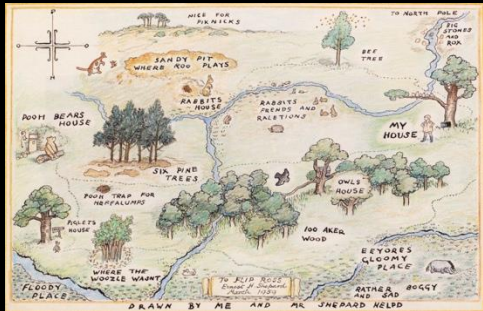 NICE FOR
PIKNICKS
TO NORTH POLE
BIG
STONES
AND
ROX
SANDY PIT
WHERE ROO PLAYS
BEE
TREE
RABBITS
HOUSE
RABBITS
FRENDS AND
RALETIONS
POOH BEARS
HOUSE
MY
HOUSE
SIX PINE
TREES
POOH TRAP FOR
HEFFALUMPS
OWLS
HOUSE
PIGLETS
HOUSE
100 AKER
WOOD
WHERE THE
WOOZLE WASNT
EEYORES
GLOOMY
PLACE
FLOODY
PLACE
To FLIP ROSS
Ernest H. Shepard
March 1959
RATHER BOGGY
AND SAD
DRAWN BY ME AND MR SHEPARD HELPD